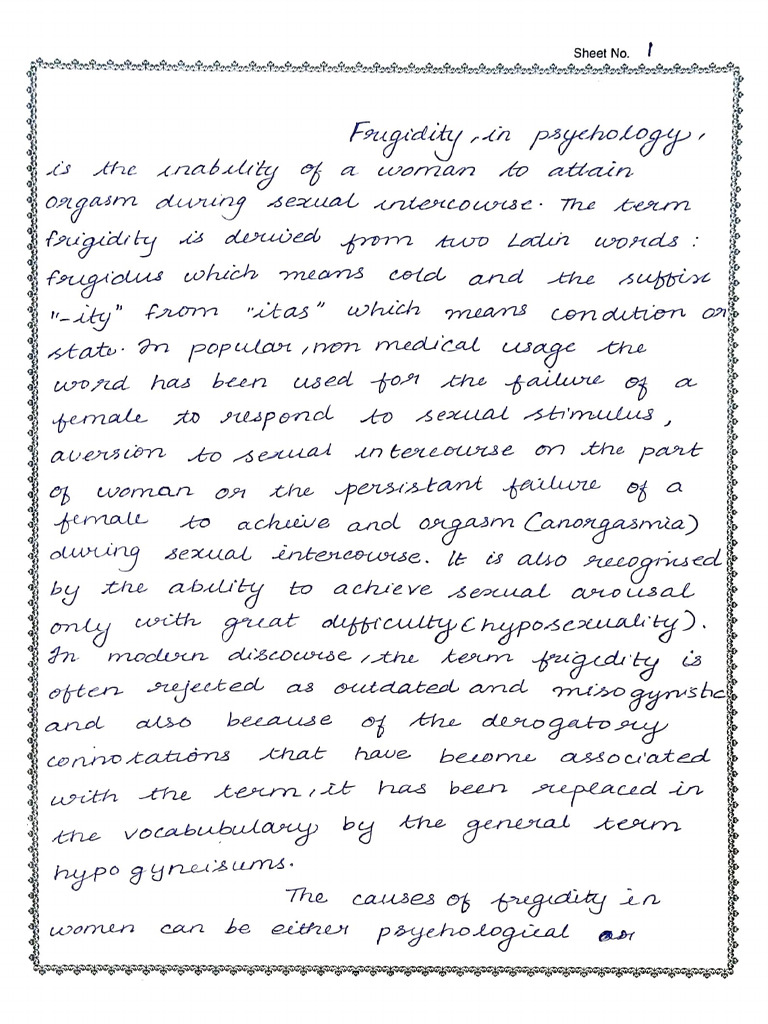 Sheet No. 1
Frigidity, in psychology,
is the inability of a woman to attain
orgasm during sexual intercourse. The term
frigidity is derived from two Latin words :
frigidus which means cold and the suffix
"-ity" from "itas" which means condition or
state. In popular, non medical usage the
word has been used for the failure of a
female to respond to sexual stimulus,
aversion to sexual intercourse on the part
of woman or the persistant failure of a
female to achieve and orgasm (anorgasmia)
during sexual intercourse. It is also recognised
by the ability to achieve sexual arousal
only with great difficulty (hyposexuality).
In modern discourse, the term frigidity is
often rejected as outdated and misogynistic
and also because of the derogatory
connotations that have become associated
with the term, it has been replaced in
the vocabubulary by the general term
hypogyneisums.
The causes of frigidity in
women can be either psychological or